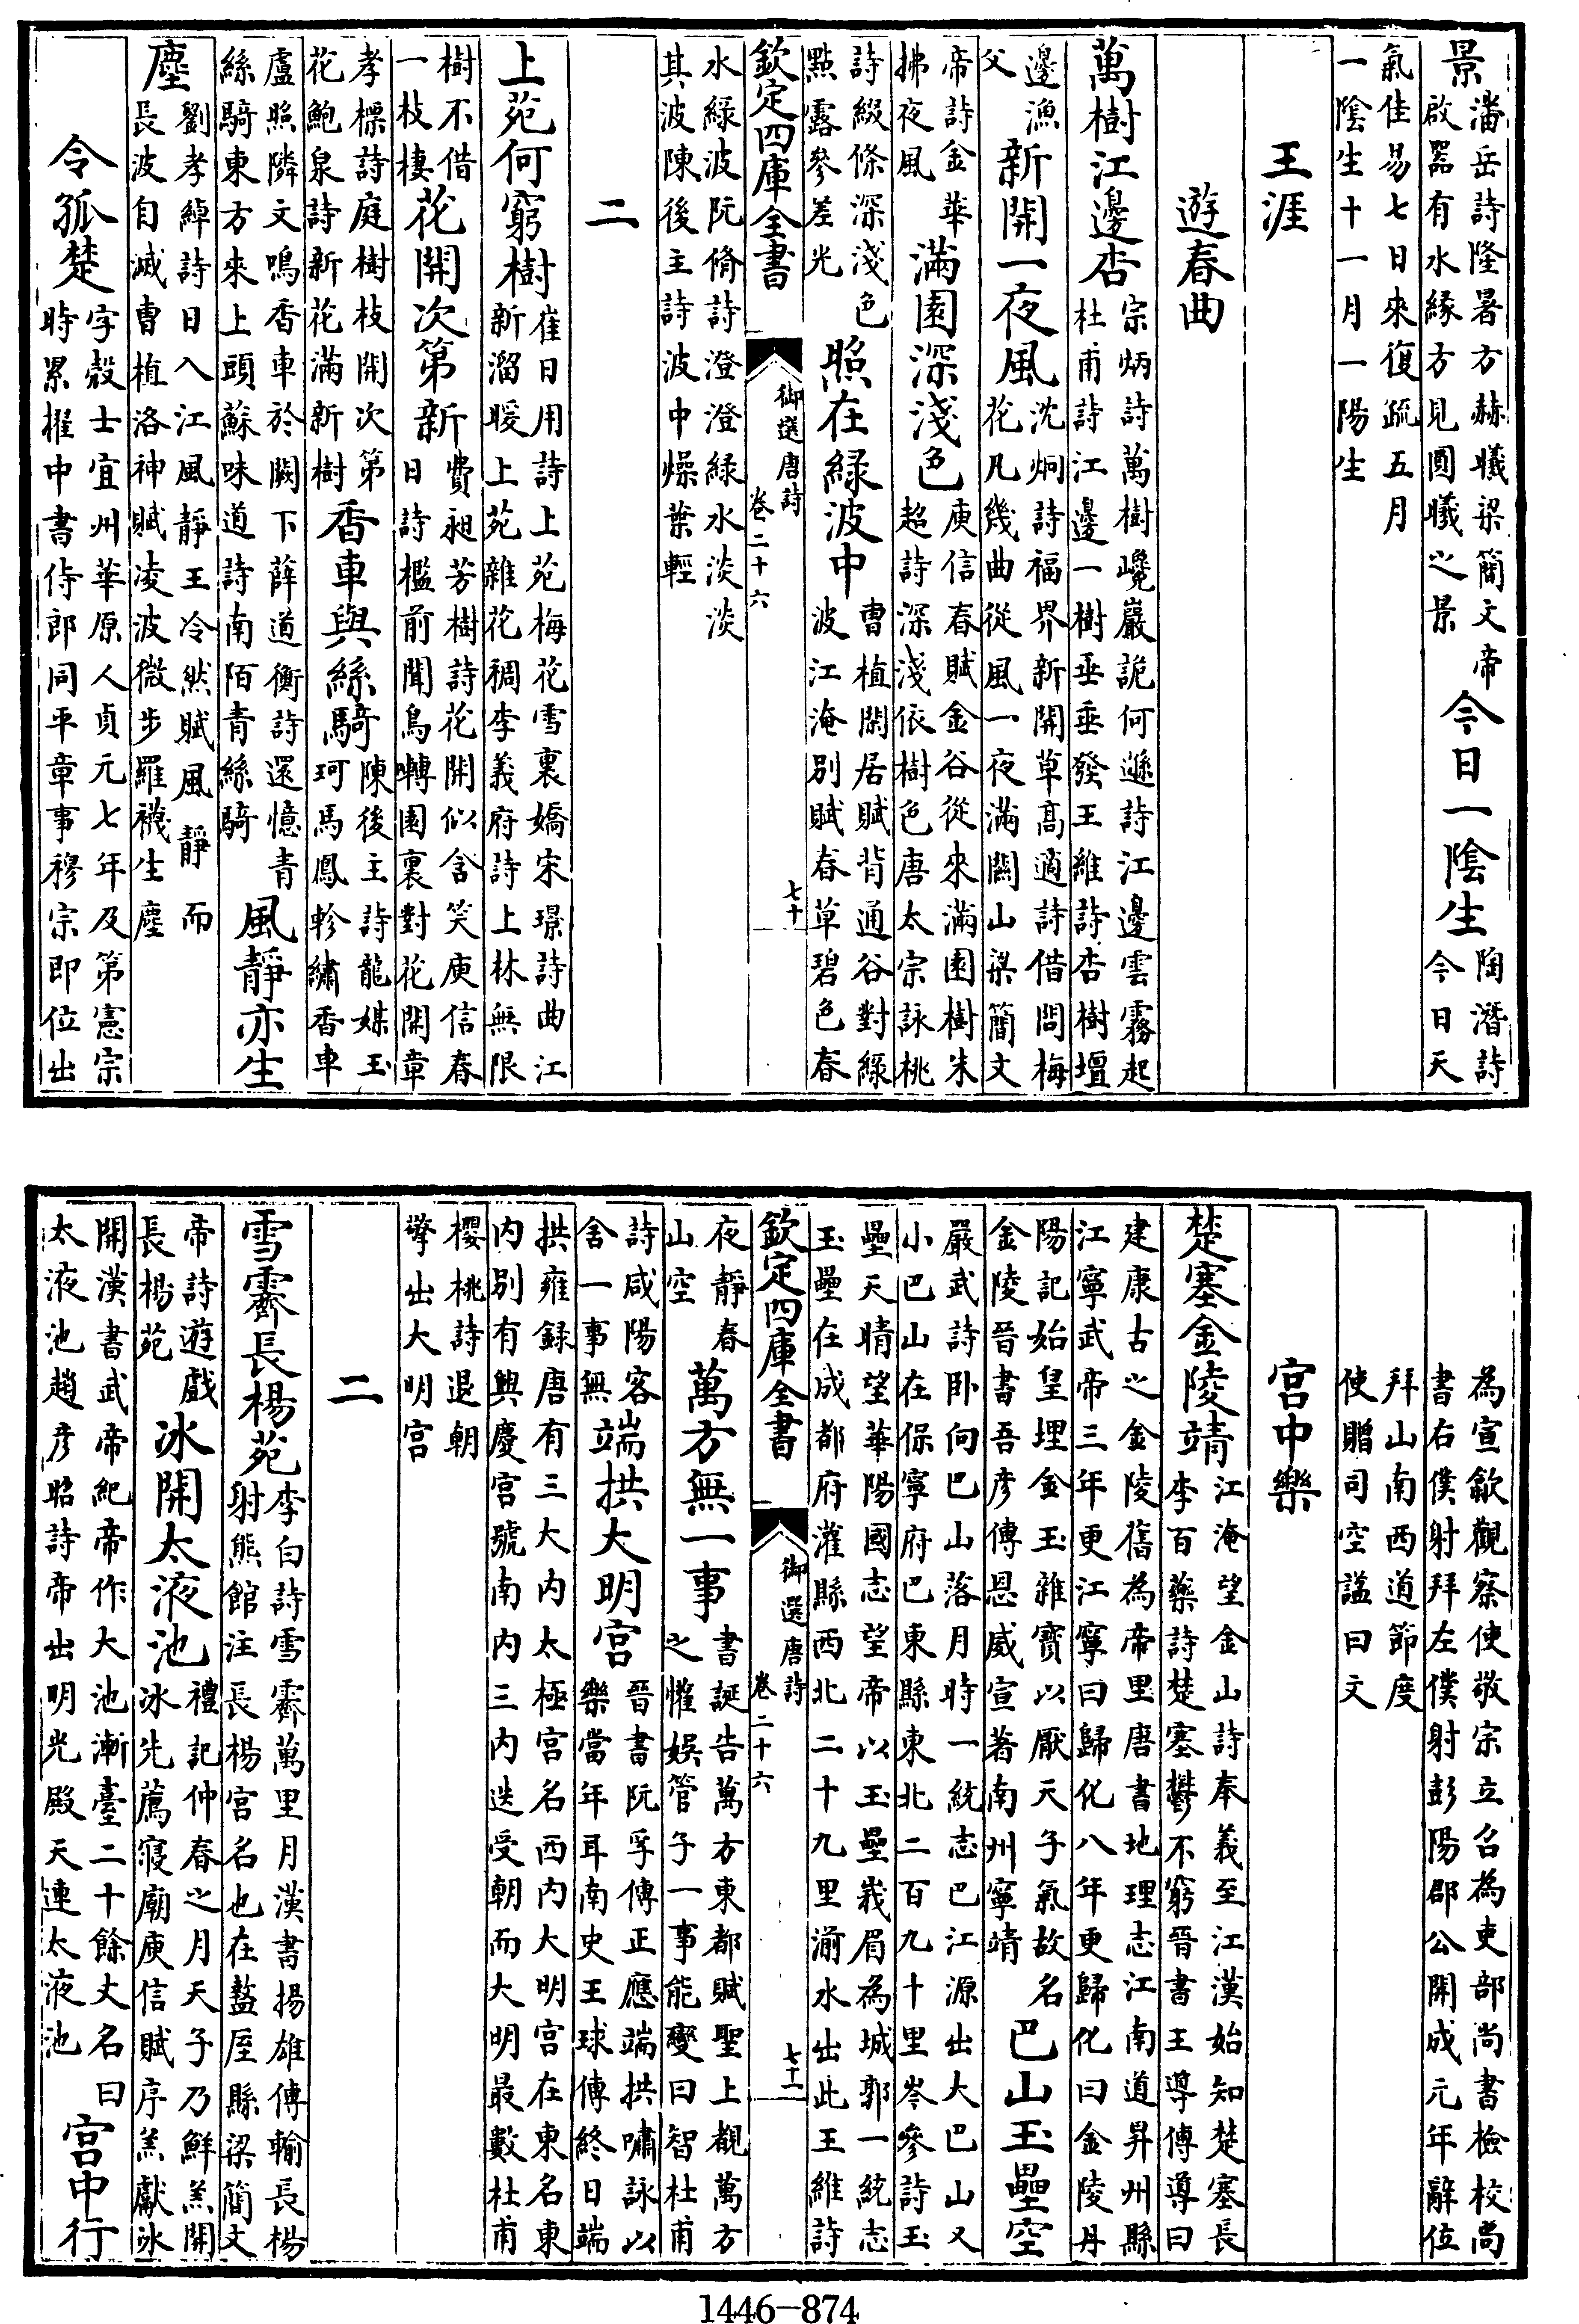 景潘岳詩隆暑方赫曦梁簡文帝啟器有水緣方見圓曦之景今日一陰生陶潛詩今日天
氣佳易七日來復疏五月一陰生十一月一陽生
王涯
遊春曲
萬樹江邊杏宗炳詩萬樹巉巖詭何遜詩江邊雲霧起杜甫詩江邊一樹垂垂發王維詩杏樹壇
邊漁父新開一夜風沈炯詩福界新開草高適詩借問梅花凡幾曲從風一夜滿關山梁簡文
帝詩金華拂夜風滿園深淺色庾信春賦金谷從來滿園樹朱超詩深淺依樹色唐太宗詠桃
詩綴條深淺色點露參差光照在綠波中曹植閑居賦背通谷對綠波江淹別賦春草碧色春
欽定四庫全書
御選唐詩
卷二十六
七十
水綠波阮脩詩澄澄綠水淡淡其波陳後主詩波中燥葉輕
二
上苑何窮樹崔日用詩上苑梅花雪裏嬌宋璟詩曲江新溜暖上苑雜花稠李義府詩上林無限
樹不借一枝棲花開次第新費昶芳樹詩花開似含笑庾信春日詩檻前聞鳥囀園裏對花開章
孝標詩庭樹枝開次第花鮑泉詩新花滿新樹香車與絲騎陳後主詩龍媒玉珂馬鳳軫繡香車
盧照隣文鳴香車於闕下薛道衡詩還憶青絲騎東方來上頭蘇味道詩南陌青絲騎風靜亦生
塵劉孝綽詩日入江風靜王冷然賦風靜而長波自滅曹植洛神賦凌波微步羅襪生塵
令狐楚字殼士宜州華原人貞元七年及第憲宗時累擢中書侍郎同平章事穆宗即位出
為宣歙觀察使敬宗立召為吏部尚書檢校尚書右僕射拜左僕射彭陽郡公開成元年辭位
拜山南西道節度使贈司空諡曰文
宮中樂
楚塞金陵靖江淹望金山詩奉義至江漢始知楚塞長李百藥詩楚塞鬱不窮晉書王導傳導曰
建康古之金陵舊為帝里唐書地理志江南道昇州縣江寧武帝三年更江寧曰歸化八年更歸化曰金陵丹
陽記始皇埋金玉雜寶以厭天子氣故名金陵晉書吾彥傳恩威宣著南州寧靖巴山玉壘空
嚴武詩卧向巴山落月時一統志巴江源出大巴山又小巴山在保寧府巴東縣東北二百九十里岑參詩玉
壘天晴望華陽國志望帝以玉壘峩眉為城郭一統志玉壘在成都府灌縣西北二十九里湔水出此王維詩
欽定四庫全書
御選唐詩
卷二十六
七十一
夜靜春山空萬方無一事書誕告萬方東都賦聖上覩萬方之懽娛管子一事能變曰智杜甫
詩咸陽客舍一事無端拱大明宮晉書阮孚傳正應端拱嘯詠以樂當年耳南史王球傳終日端
拱雍錄唐有三大內太極宮名西內大明宮在東名東內別有興慶宮號南內三內迭受朝而大明最數杜甫
櫻桃詩退朝擎出大明宮
二
雪霽長楊苑李白詩雪霽萬里月漢書揚雄傳輸長楊射熊館注長楊宮名也在盩厔縣梁簡文
帝詩遊戲長楊苑冰開太液池禮記仲春之月天子乃鮮羔開冰先薦寢廟庾信賦序羔獻冰
開漢書武帝紀帝作大池漸臺二十餘丈名曰太液池趙彥昭詩帝出明光殿天連太液池宮中行
1446—874